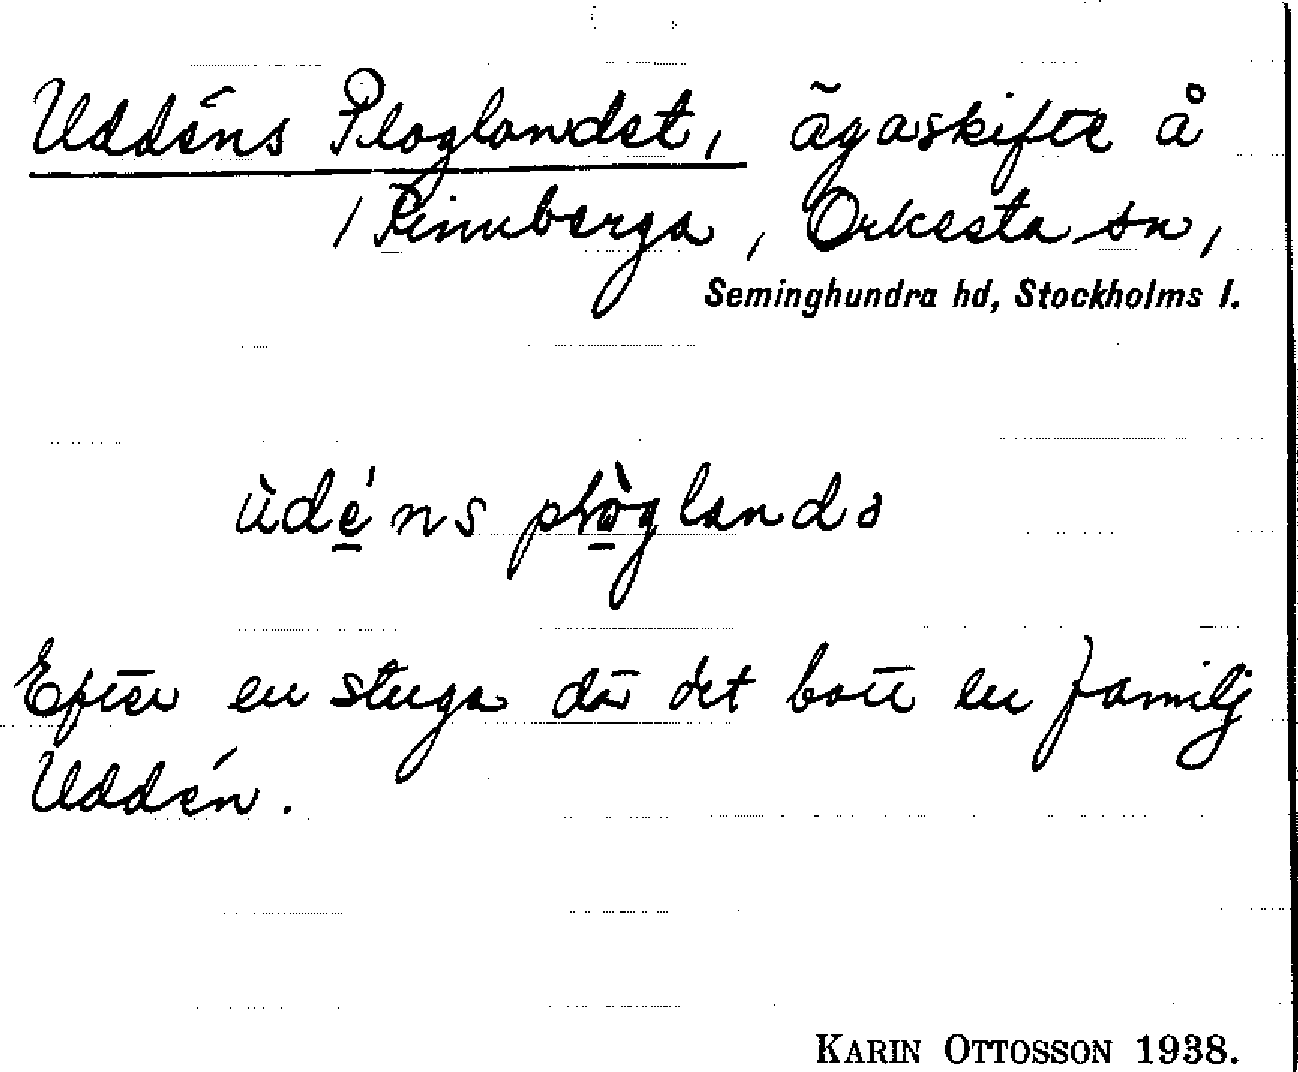 Uddéns Ploglandet, ägaskifte å
/ Rinnberga, Orkesta sn,
Seminghundra hd, Stockholms l.
ùdéns plòglanda
Efter en stuga där det bott en familj
Uddén.
KARIN OTTOSSON 1938.